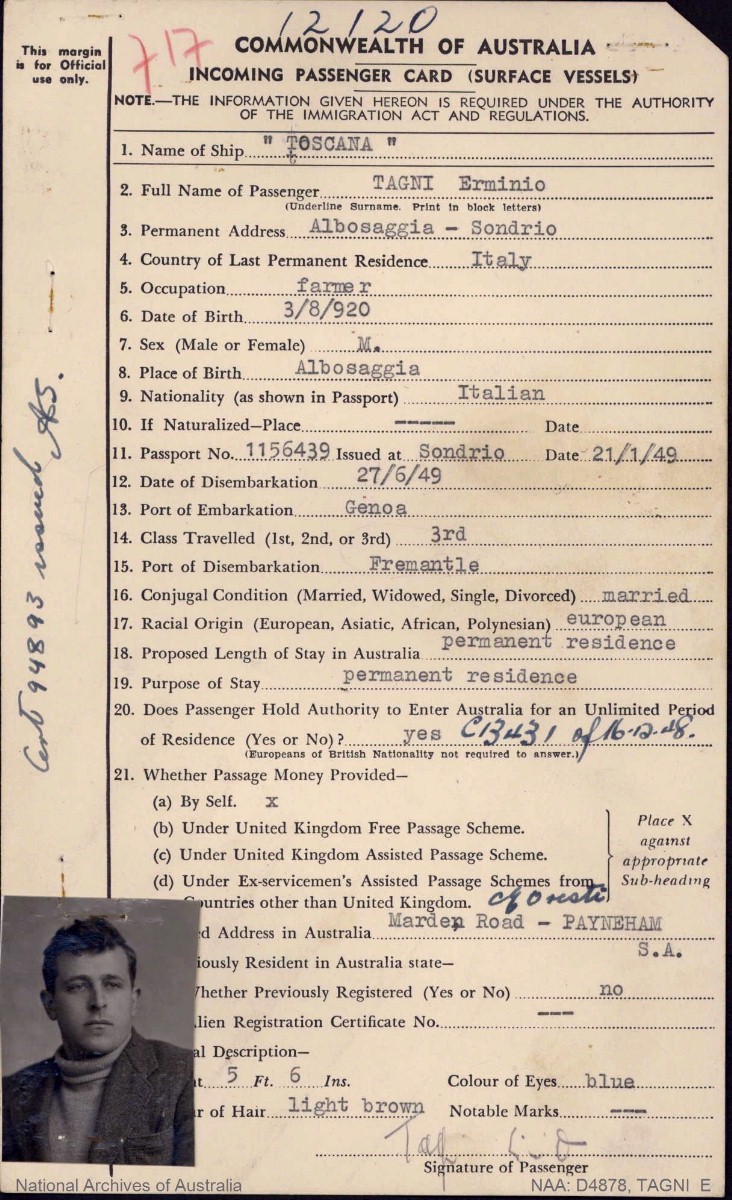 12120
717
This margin
is for Official
use only.
COMMONWEALTH OF AUSTRALIA
INCOMING PASSENGER CARD (SURFACE VESSELS)
NOTE.—THE INFORMATION GIVEN HEREON IS REQUIRED UNDER THE AUTHORITY
OF THE IMMIGRATION ACT AND REGULATIONS.
1. Name of Ship "TOSCANA"
2. Full Name of Passenger TAGNI Erminio
(Underline Surname. Print in block letters)
3. Permanent Address Albosaggia - Sondrio
4. Country of Last Permanent Residence Italy
5. Occupation farmer
6. Date of Birth 3/8/920
7. Sex (Male or Female) M.
8. Place of Birth Albosaggia
9. Nationality (as shown in Passport) Italian
10. If Naturalized—Place ----- Date
11. Passport No. 1156439 Issued at Sondrio Date 21/1/49
12. Date of Disembarkation 27/6/49
13. Port of Embarkation Genoa
14. Class Travelled (1st, 2nd, or 3rd) 3rd
15. Port of Disembarkation Fremantle
16. Conjugal Condition (Married, Widowed, Single, Divorced) married
17. Racial Origin (European, Asiatic, African, Polynesian) european
18. Proposed Length of Stay in Australia permanent residence
19. Purpose of Stay permanent residence
20. Does Passenger Hold Authority to Enter Australia for an Unlimited Period
of Residence (Yes or No)? yes C13431 of 16-12-48.
(Europeans of British Nationality not required to answer.)
21. Whether Passage Money Provided—
(a) By Self. x
(b) Under United Kingdom Free Passage Scheme.
(c) Under United Kingdom Assisted Passage Scheme.
(d) Under Ex-servicemen's Assisted Passage Schemes from
Countries other than United Kingdom.
Place X
against
appropriate
Sub-heading
Address in Australia Marden Road - PAYNEHAM
S.A.
iously Resident in Australia state—
Whether Previously Registered (Yes or No) no
Alien Registration Certificate No. ---
al Description—
t 5 Ft. 6 Ins. Colour of Eyes blue
r of Hair light brown Notable Marks ---
Signature of Passenger
Cert 94893 issued
National Archives of Australia
NAA: D4878, TAGNI E